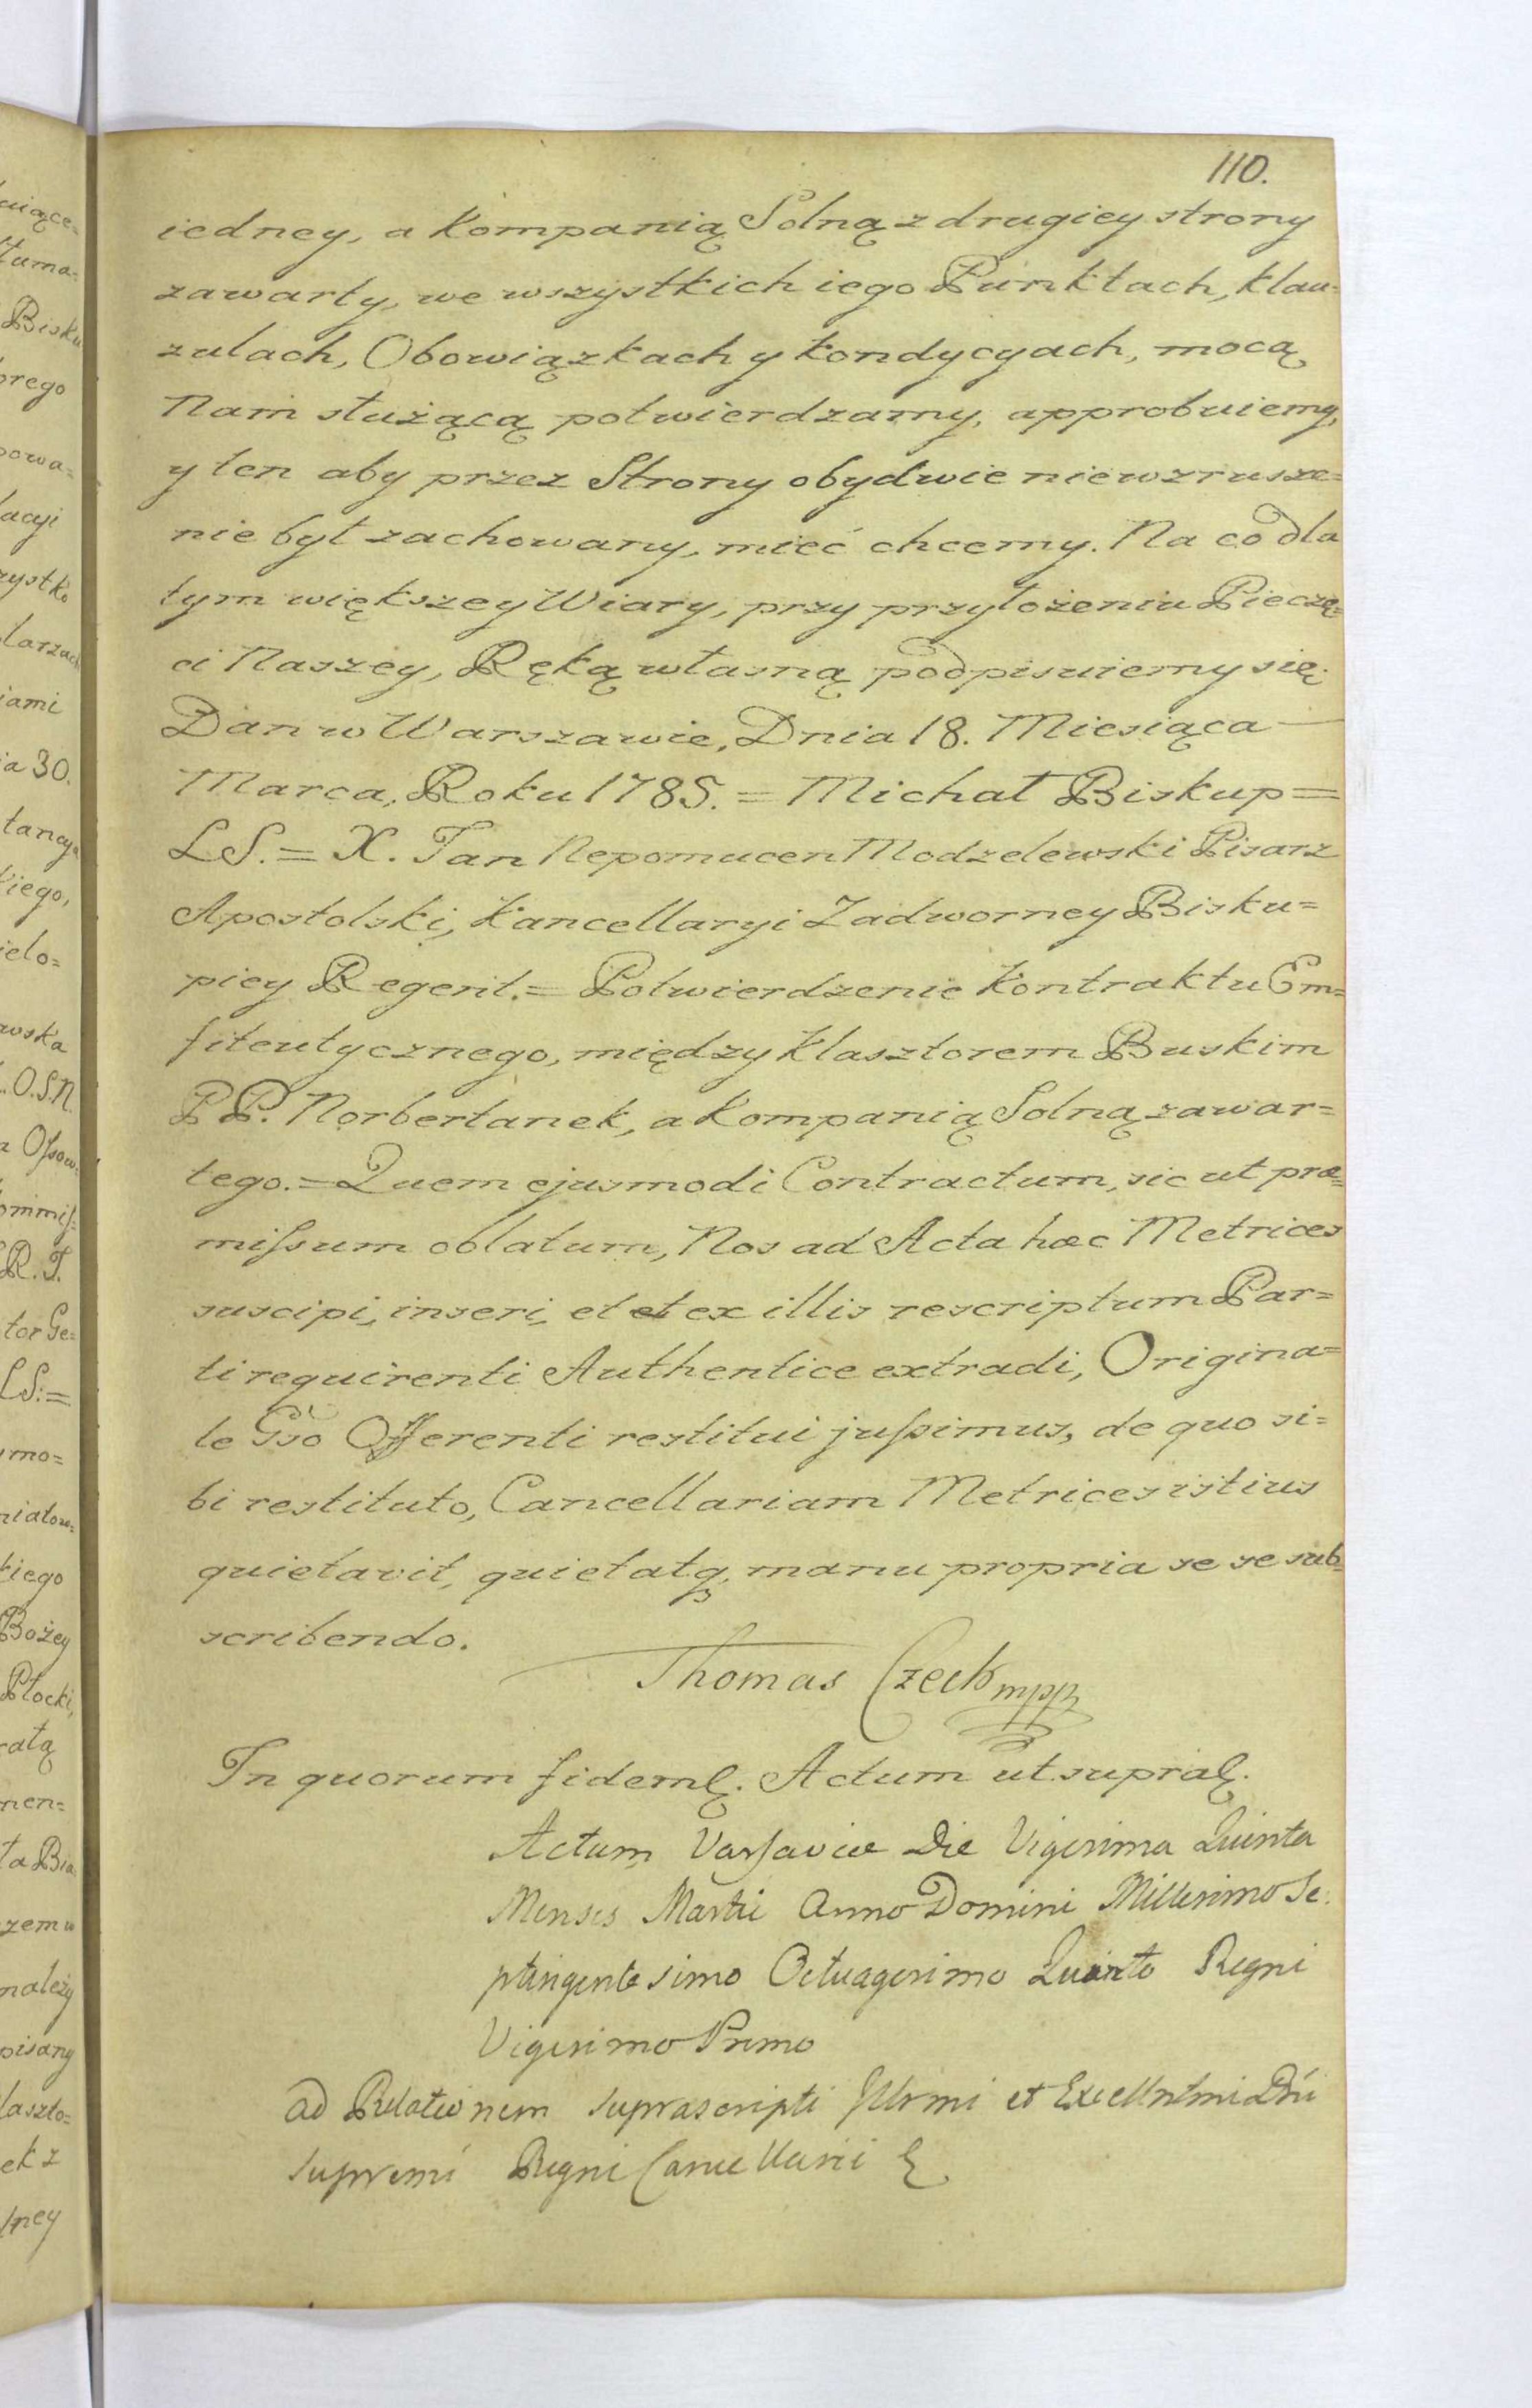 110.
iedney, a Kompanią Solną z drugiey strony
zawarty, we wszystkich iego Punktach, klau=
zulach, Obowiązkach y kondycyach, mocą
Nam służącą potwierdzamy, approbuiemy,
y ten aby przez Strony obydwie niewzrusze=
nie był zachowany, mieć chcemy. Na co dla
tym większey Wiary, przy przyłożeniu Pieczę=
ci Naszey, Ręką własną podpisuiemy się.
Dan w Warszawie, Dnia 18. Miesiąca
Marca, Roku 1785. = Michał Biskup =
LS. = X. Jan Nepomucen Modzelewski Pisarz
Apostolski, Kancellaryi Zadworney Bisku=
piey Regent. = Potwierdzenie Kontraktu Em=
fiteutycznego, między Klasztorem Buskim
PP. Norbertanek, a Kompanią Solną zawar=
tego. = Quem ejusmodi Contractum, sic ut præ=
missum oblatum, Nos ad Acta hæc Metrices
suscipi, inseri, et et ex illis rescriptum Par=
ti requirenti Authentice extradi, Origina=
le Gso Offerenti restitui jussimus, de quo si=
bi restituto, Cancellariam Metrices istius
quietavit, quietatq, manu propria se se sub=
scribendo.
Thomas Czech mpp
In quorum fidem &. Actum ut supra &.
Actum Varsaviæ Die Vigesima Quinta
Mensis Martii Anno Domini Millesimo Se
ptingentesimo Octuagesimo Quinto Regni
Vigesimo Primo
ad Relationem suprascripti Illrmi et Excellntmi Dni
supremi Regni Cancellarii &